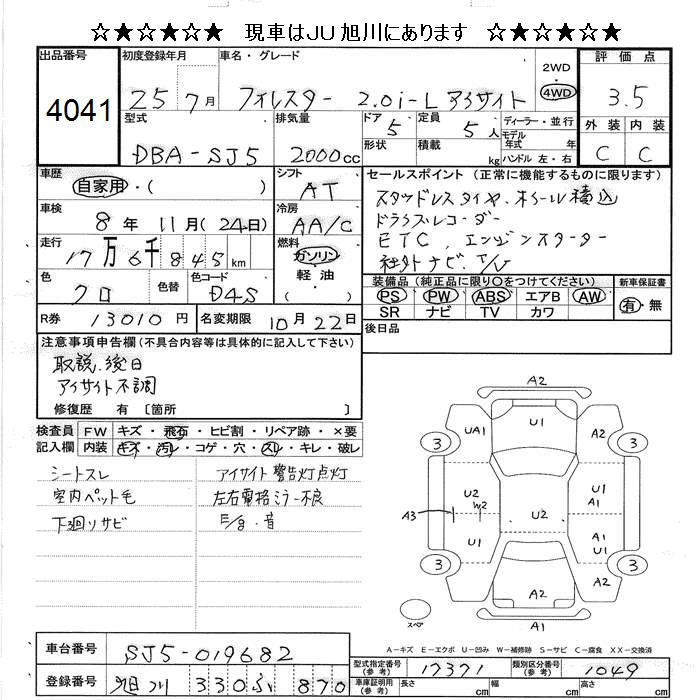 ☆★☆★☆★ 現車はJU旭川にあります ☆★☆★☆★
出品番号 4041
初度登録年月 25 7月
車名・グレード フォレスター 2.0i-L アイサイト
2WD 4WD
評価点 3.5
外装 C 内装 C
型式 DBA-SJ5
排気量 2000cc
ドア 5 形状
定員 5人 積載 kg
ディーラー・並行
モデル年式 年式
ハンドル 左・右
車歴 自家用・( )
シフト AT
車検 8年 11月(24日)
冷房 AA/C
走行 17万6千845km
燃料 ガソリン 軽油 ( )
色 クロ 色替
色コード D4S
R券 13010円
名変期限 10月22日
セールスポイント(正常に機能するものに限ります)
スタッドレスタイヤ、ホイール積込
ドライブレコーダー
ETC、エンジンスターター
社外ナビ.T/V
装備品(純正品に限り〇をつけてください)
PS PW ABS エアB AW
SR ナビ TV カワ
新車保証書 有・無
後日品
注意事項申告欄(不具合内容等は具体的に記入して下さい)
取説、後日
アイサイト不調
修復歴 有 〔箇所 〕
検査員記入欄
FW キズ・飛石・ヒビ割・リペア跡・×要
内装 キズ・汚レ・コゲ・穴・スレ・キレ・破レ
シートスレ
室内ペット毛
下廻リサビ
アイサイト警告灯点灯
左右電格ミラー不良
E/g.音
A2
U1
UA1
A2
3
3
U2
W2
A3
U2
U1
A1
U1
A1
U1
3
3
A2
A2
A1
スペア
A-キズ E-エクボ U-凹み W-補修跡 S-サビ C-腐食 XX-交換済
車台番号 SJ5-019682
登録番号 旭川 330 ふ 870
型式指定番号(参考) 17371
類別区分番号(参考) 1049
車庫証明用(参考) 長さ cm 幅 cm 高さ cm